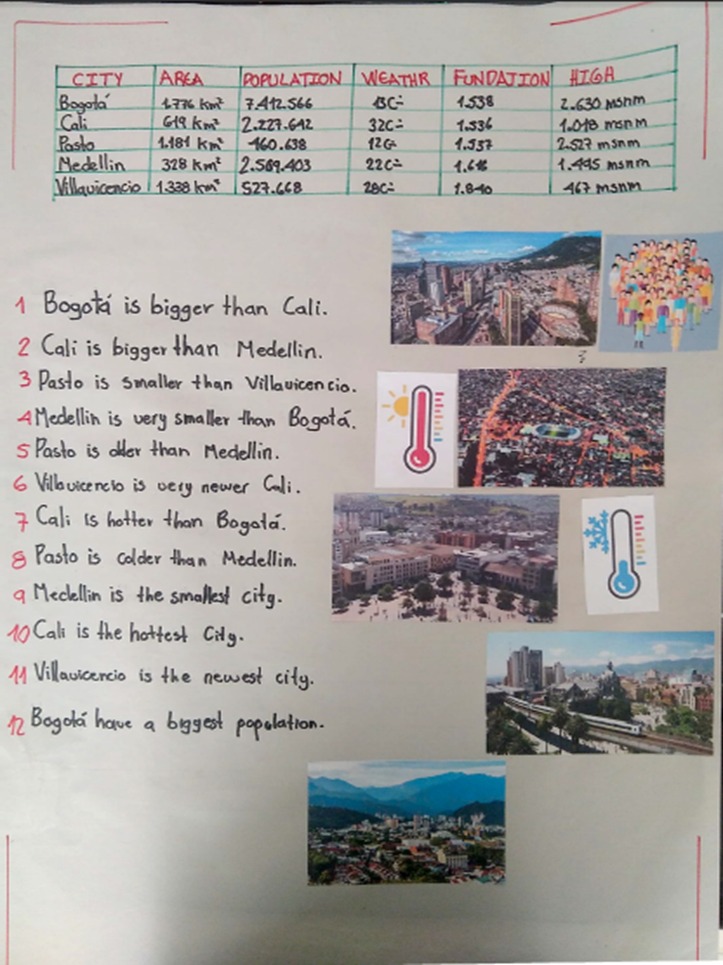 CITY AREA POPULATION WEATHR FUNDATION HIGH
Bogotá 1.776 km² 7.412.566 13C÷ 1.538 2.630 msnm
Cali 619 km² 2.227.642 32C÷ 1.536 1.018 msnm
Pasto 1.181 km² 460.638 12C÷ 1.537 2.527 msnm
Medellin 328 km² 2.569.403 22C÷ 1.616 1.495 msnm
Villavicencio 1.338 km² 527.668 28C÷ 1.840 467 msnm
1 Bogotá is bigger than Cali.
2 Cali is bigger than Medellin.
3 Pasto is smaller than Villavicencio.
4 Medellin is very smaller than Bogotá.
5 Pasto is older than Medellin.
6 Villavicencio is very newer Cali.
7 Cali is hotter than Bogotá.
8 Pasto is colder than Medellin.
9 Medellin is the smallest city.
10 Cali is the hottest City.
11 Villavicencio is the newest city.
12 Bogotá have a biggest population.